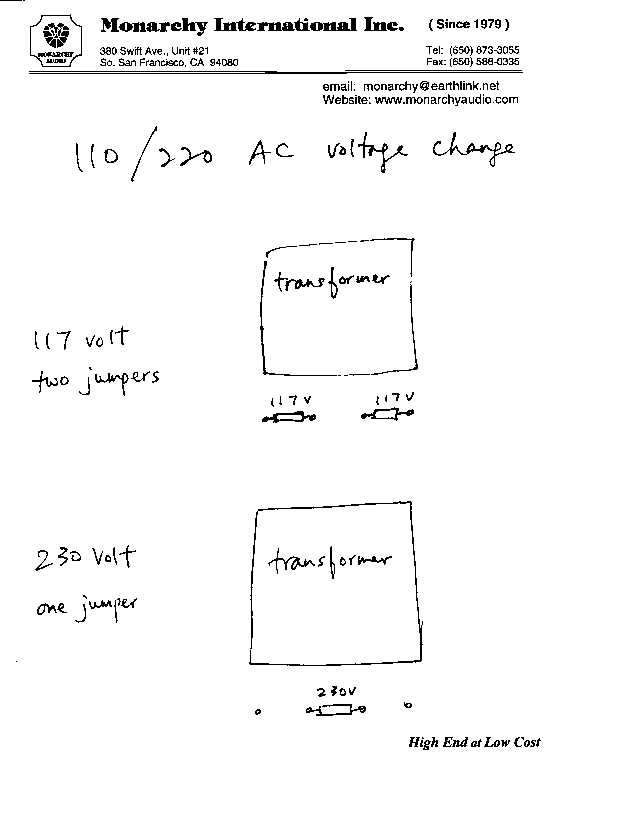 Monarchy International Inc. (Since 1979)
MONARCHY
AUDIO
380 Swift Ave., Unit #21
So. San Francisco, CA 94080
Tel: (650) 873-3055
Fax: (650) 588-0335
email: monarchy@earthlink.net
Website: www.monarchyaudio.com
110/220 AC voltage change
transformer
117 volt
two jumpers
117V 117V
230 Volt
one jumper
transformer
230V
High End at Low Cost